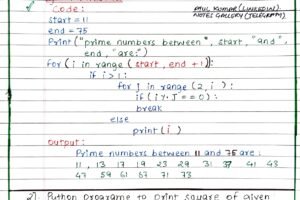 Code:
ATUL KUMAR (LINKEDIN)
NOTES GALLERY (TELEGRAM)
start = 11
end = 75
Print ("prime numbers between", start, "and",
end, "are:")
for (i in range (start, end + 1)):
if i > 1:
for j in range (2, i):
if (i % j == 0):
break
else
print (i)
Output:
Prime numbers between 11 and 75 are:
11 13 17 19 23 29 31 37 41 43
47 59 61 67 71 73
2). Python programe to print square of given